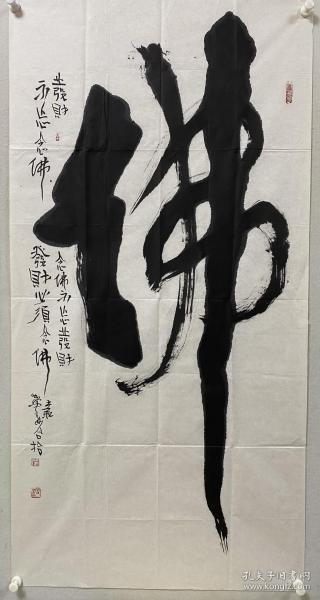 佛
發財
不忘念佛
念佛不忘發財
發財必須念佛
合指
孔夫子旧书网